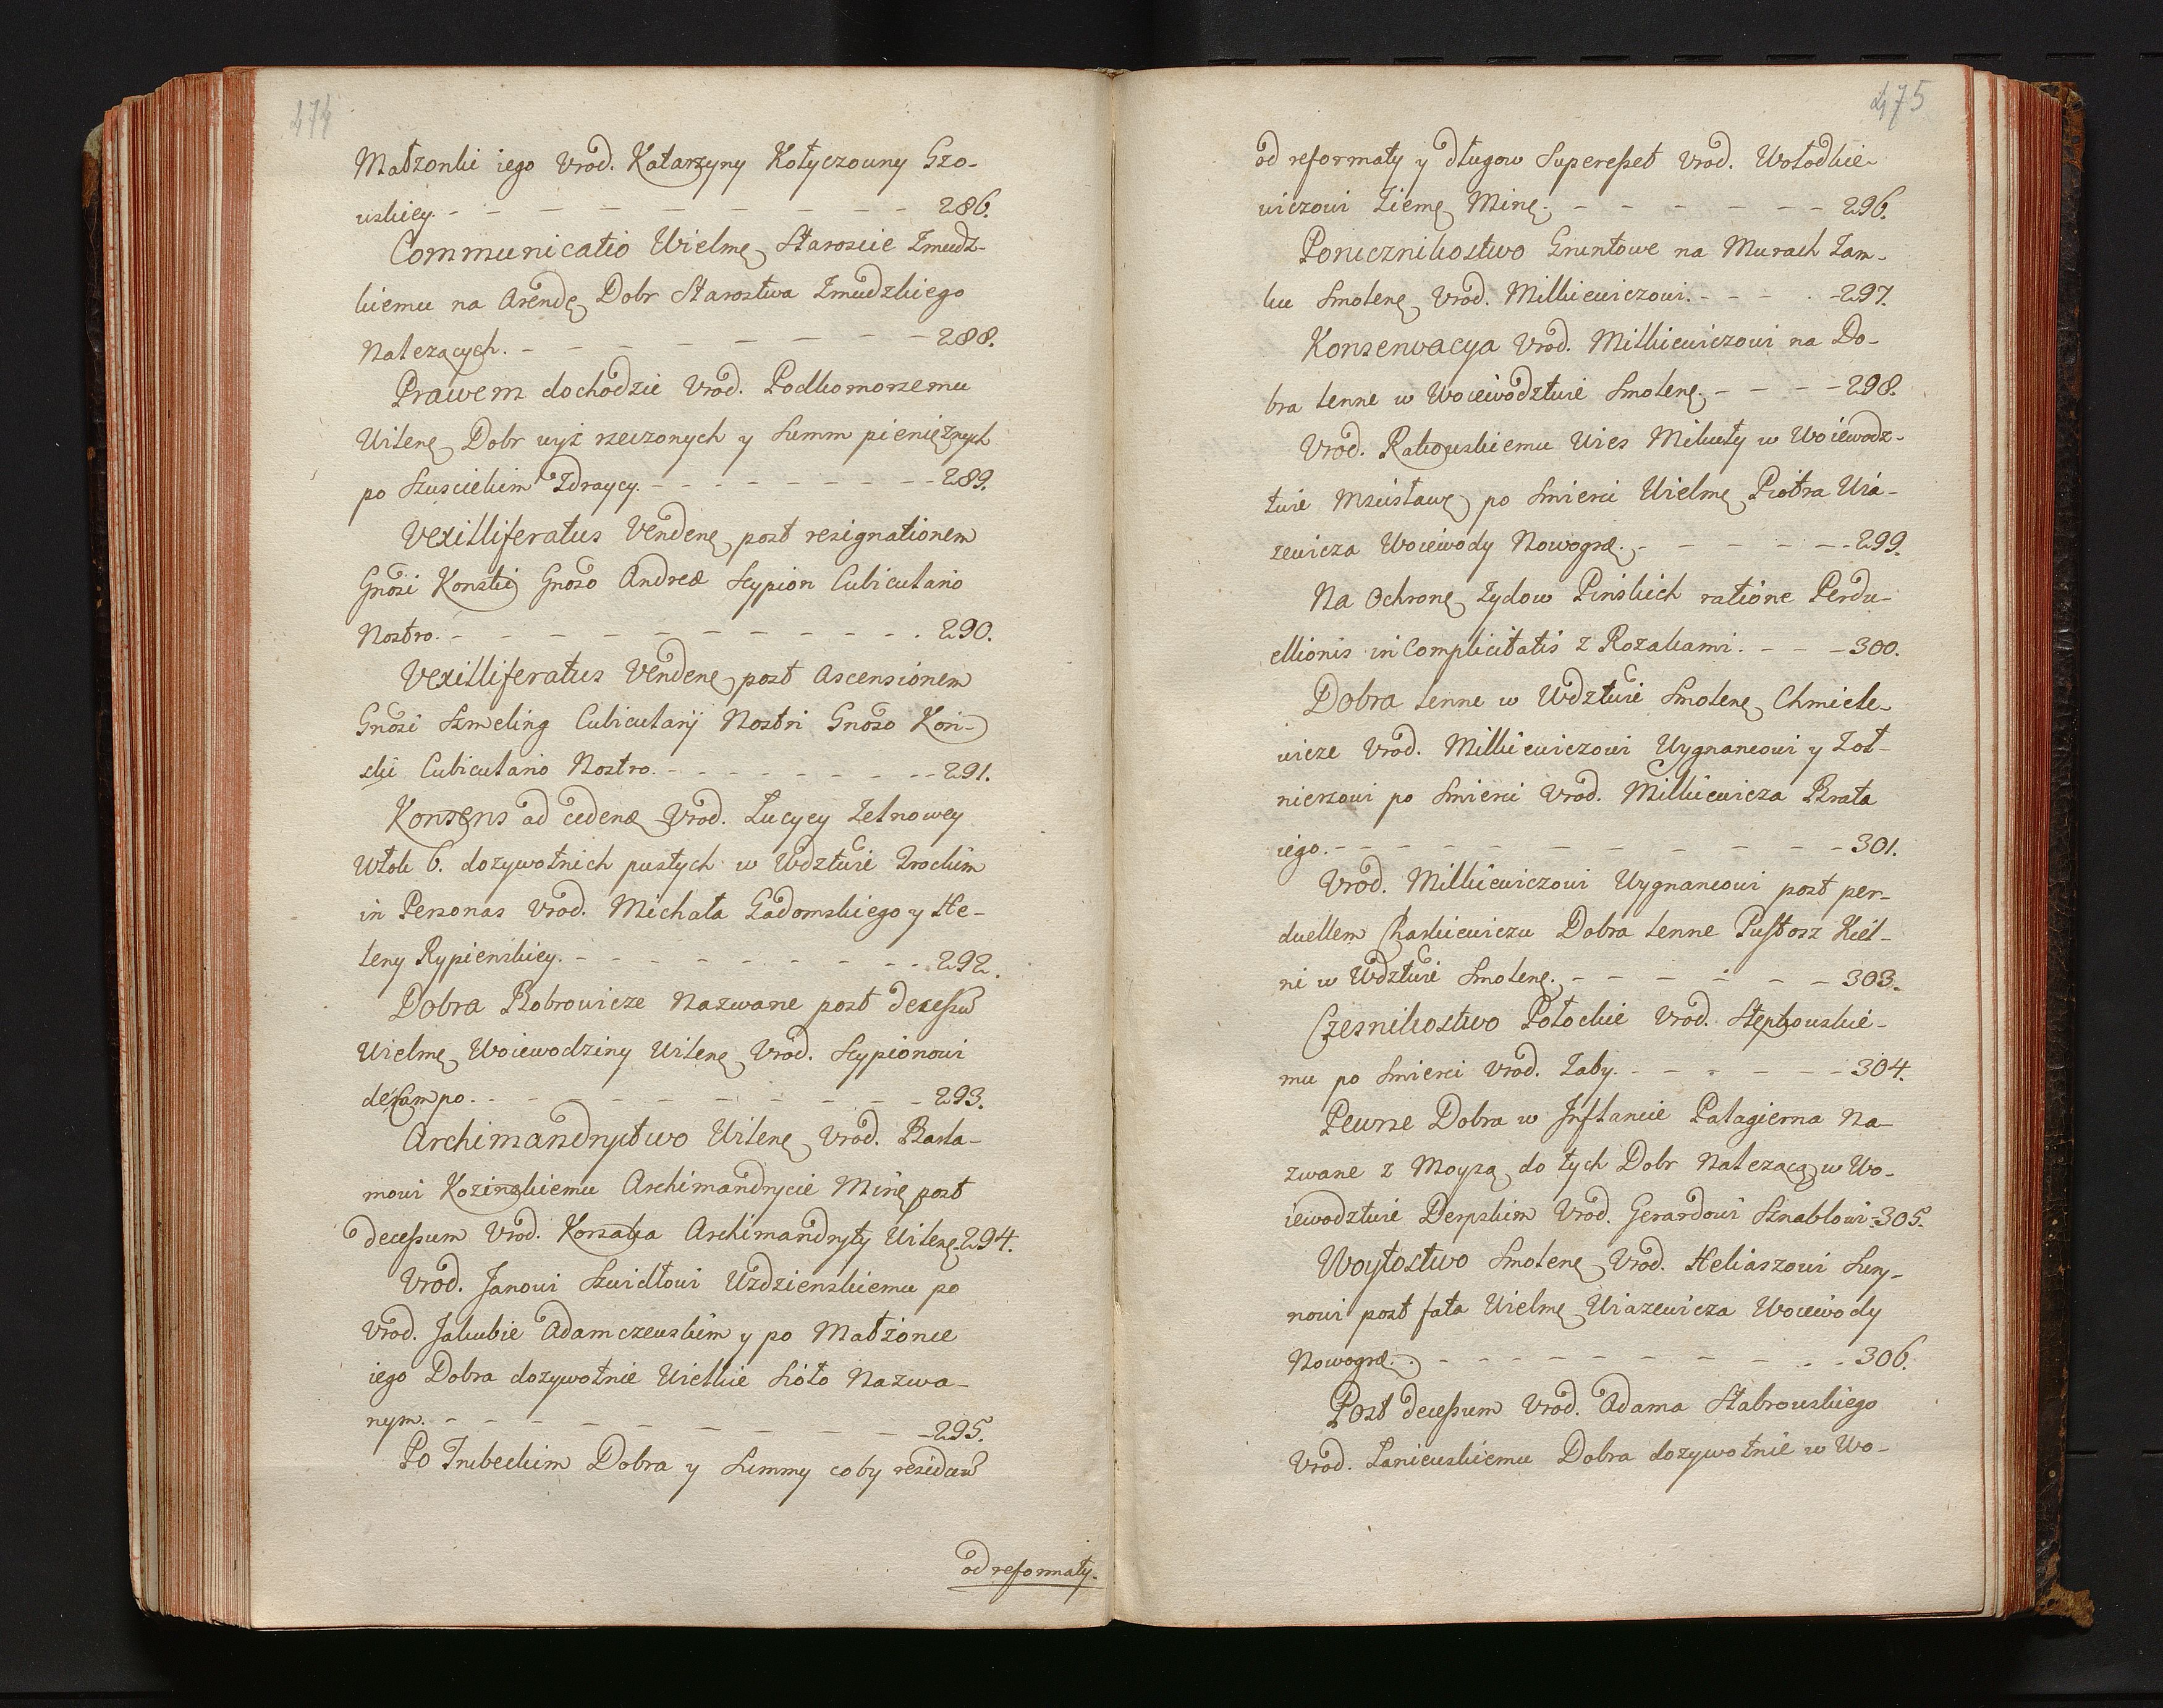 474
Małzonki iego Vrod. Katarzyny Kotyczowny Gzo-
wskiey. - - - - - - - - - 286.
Communicatio Wielmę Staroscie Zmudz-
kiemu na Arendę Dobr Starostwa Zmudzkiego
Nalezących. - - - - - - - - 288.
Prawem dochodzic Vrod. Podkomorzemu
Wilenę Dobr wyż rzeczonych y Summ pieniężnych
po Szuscickim Zdraycy. - - - - - - - - 289.
Vexilliferatus Vendenę post resignationem
Gnosi Konski Gnoso Andreæ Scypion Cubiculario
Nostro. - - - - - - - - - - 290.
Vexilliferatus Vendenę post Ascensionem
Gnosi Szmeling Cubicularij Nostri Gnoso Kon-
ski Cubiculario Nostro. - - - - - - - - 291.
Konsens ad cedenđ Vrod. Łucyey Zelnowey
Włok 6. dozywotnich pustych w Wdztwie Trockim
in Personas Vrod. Michała Gadomskiego y He-
leny Rypienskiey. - - - - - - - - 292.
Dobra Bobrowicze Nazwane post decessũ
Wielmę Woiewodziny Wilenę Vrod. Scypionowi
deCampo. - - - - - - - - - 293.
Archimandryctwo Wilenę Vrod. Barla-
mowi Kozinskiemu Archimandrycie Minę post
decessum Vrod. Korsaka Archimandryty Wilenę 294.
Vrod. Janowi Szwidłowi Uzdzienskiemu po
Vrod. Jakubie Adamczewskim y po Małżonce
iego Dobra dozywotnie Wielkie Sioło Nazwa-
nym. - - - - - - - - - 295.
Po Trubeckim Dobra y Summy coby residuũ
od reformaty.
475
od reformaty y długow Superesset Vrod. Wołodkie-
wiczowi Ziemę Minę. - - - - - - - 296.
Ponicznikostwo Gruntowe na Murach Zam-
ku Smolenę Vrod. Milkiewiczowi. - - - - 297.
Konserwacya Vrod. Milkiewiczowi na Do-
bra lenne w Woiewodztwie Smolenę. - - - - 298.
Vrod. Rakowskiemu Wies Mikuty w Woiewodz-
twie Mscisławę po Smierci Wielmę Piotra Wia-
zewicza Woiewody Nowogrđ. - - - - - - 299.
Na Ochronę Zydow Pinskich ratione Perdu-
ellionis in Complicitatis z Kozakami. - - - 300.
Dobra lenne w Wdztwie Smolenę Chmiele-
wicze Vrod. Milkiewiczowi Wygnancowi y Zoł-
nierzowi po Smierci Vrod. Milkiewicza Brata
iego. - - - - - - - - - - 301.
Vrod. Milkiewiczowi Wygnancowi post per-
duellem Chaskiewiczu Dobra lenne Pustosz Kiel-
ni w Wdztwie Smolenę. - - - - - - 303.
Czesnikostwo Połockie Vrod. Stępkowskie-
mu po Smierci Vrod. Zaby. - - - - - - 304.
Pewne Dobra w Inflancie Palagierna Na-
zwane z Moyzą do tych Dobr Nalezącą w Wo-
iewodztwie Derpskim Vrod. Gerardowi Sznablowi. 305.
Woytostwo Smolenę Vrod. Heliaszowi Sury-
nowi post fata Wielmę Wiazewicza Woiewody
Nowogrđ. - - - - - - - - - 306.
Post decessum Vrod. Adama Stabrowskiego
Vrod. Laniewskiemu Dobra dozywotnie w Wo-